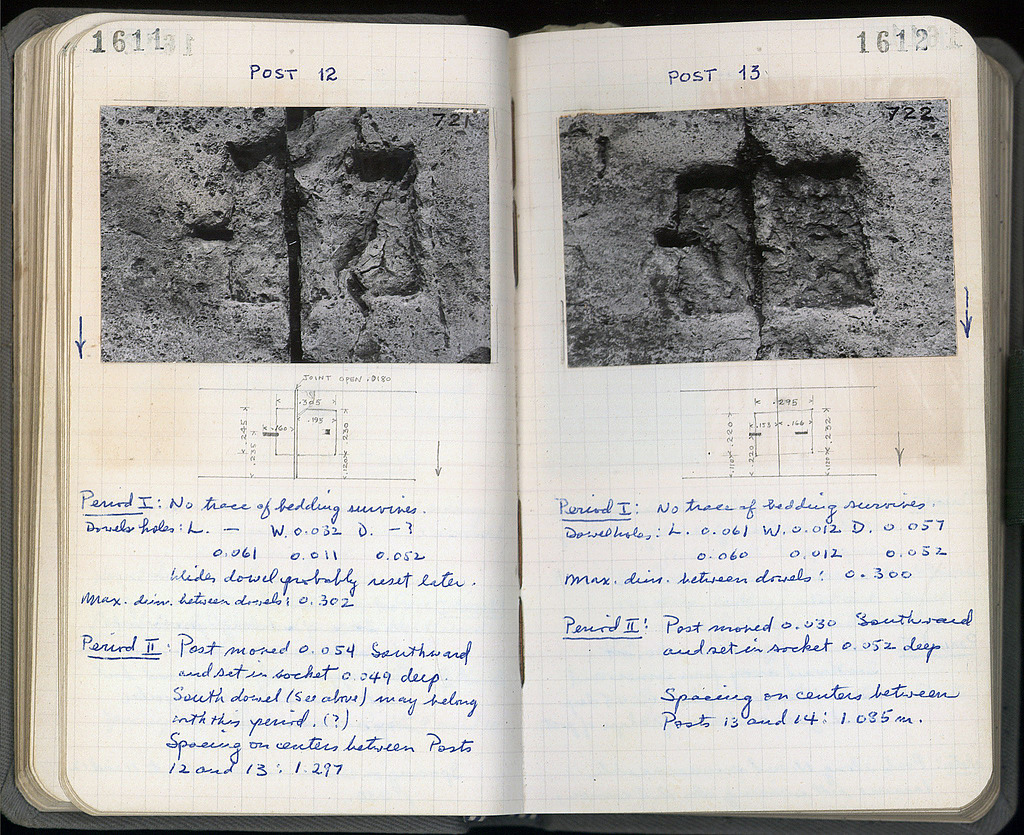 1611
POST 12
721
JOINT OPEN .0180
.305
.195
.160
.245
.235
.230
.120
Period I: No trace of bedding survives.
Dowels holes: L. — W. 0.032 D. — ?
0.061 0.011 0.052
Wides dowel probably reset later.
Max. dim. between dowels: 0.302
Period II: Post moved 0.054 Southward
and set in socket 0.049 deep.
South dowel (see above) may belong
with this period. (?)
Spacing on centers between Posts
12 and 13: 1.297
1612
POST 13
722
.295
.153
.166
.220
.220
.232
Period I: No trace of bedding survives.
Dowel holes: L. 0.061 W. 0.012 D. 0.057
0.060 0.012 0.052
Max. dim. between dowels: 0.300
Period II: Post moved 0.030 Southward
and set in socket 0.052 deep
Spacing on centers between
Posts 13 and 14: 1.035 m.